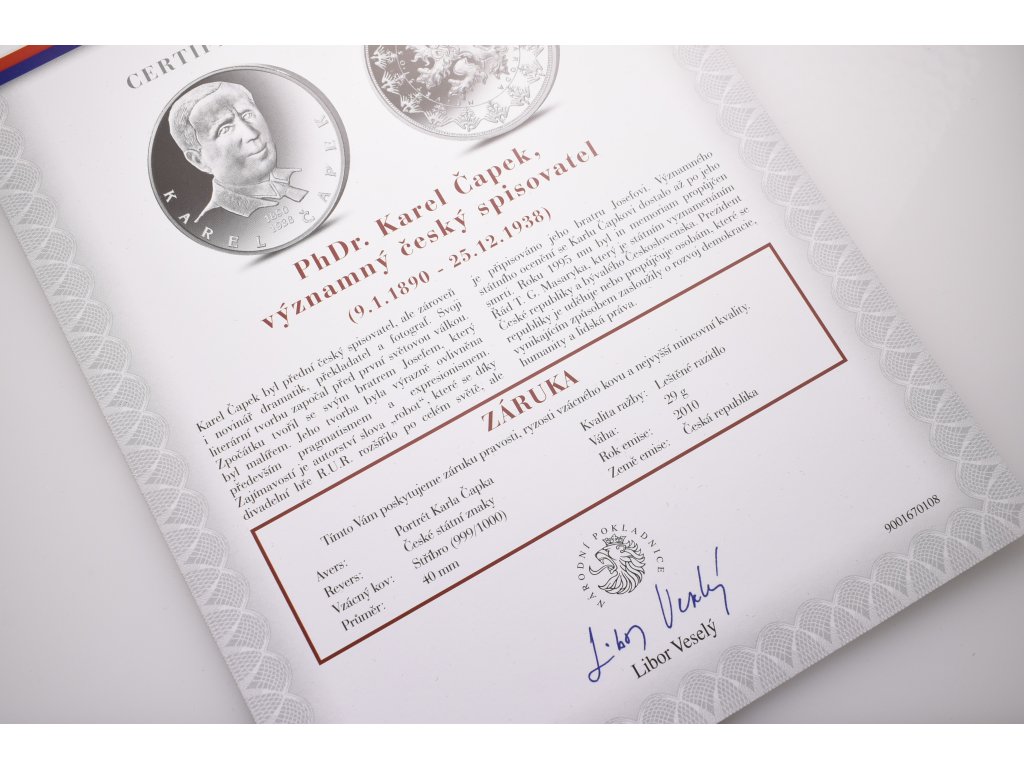 CERTIF
KAREL ČAPEK
1890
1938
PhDr. Karel Čapek,
významný český spisovatel
(9.1.1890 - 25.12.1938)
Karel Čapek byl přední český spisovatel, ale zároveň
i novinář, dramatik, překladatel a fotograf. Svoji
literární tvorbu započal před první světovou válkou.
Zpočátku tvořil se svým bratrem Josefem, který
byl malířem. Jeho tvorba byla výrazně ovlivněna
především pragmatismem a expresionismem.
Zajímavostí je autorství slova „robot“, které se díky
divadelní hře R.U.R. rozšířilo po celém světě, ale
je připisováno jeho bratru Josefovi. Významného
státního ocenění se Karlu Čapkovi dostalo až po jeho
smrti. Roku 1995 mu byl in memoriam propůjčen
Řád T. G. Masaryka, který je státním vyznamenáním
České republiky a bývalého Československa. Prezident
republiky jej uděluje nebo propůjčuje osobám, které se
vynikajícím způsobem zasloužily o rozvoj demokracie,
humanity a lidská práva.
ZÁRUKA
Tímto Vám poskytujeme záruku pravosti, ryzosti vzácného kovu a nejvyšší mincovní kvality.
Avers: Portrét Karla Čapka
Revers: České státní znaky
Vzácný kov: Stříbro (999/1000)
Průměr: 40 mm
Kvalita ražby: Leštěné razidlo
Váha: 29 g
Rok emise: 2010
Země emise: Česká republika
NÁRODNÍ POKLADNICE
Libor Veselý
Libor Veselý
9001670108